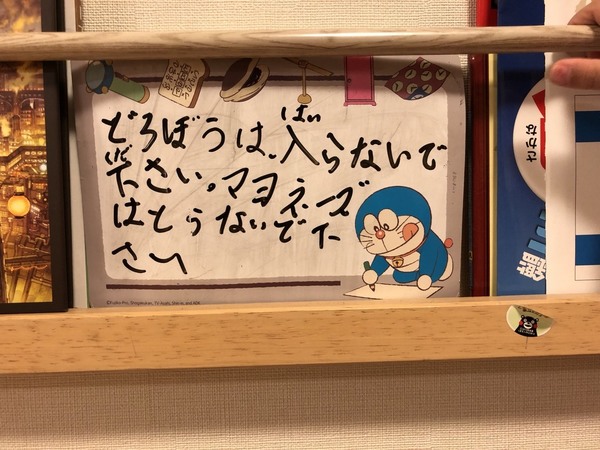 はい
どろぼうは、入らないで
さい。マヨネーズ
はとらないで下
さい
©Fujiko-Pro, Shogakukan, TV-Asahi, Shin-ei, and ADK